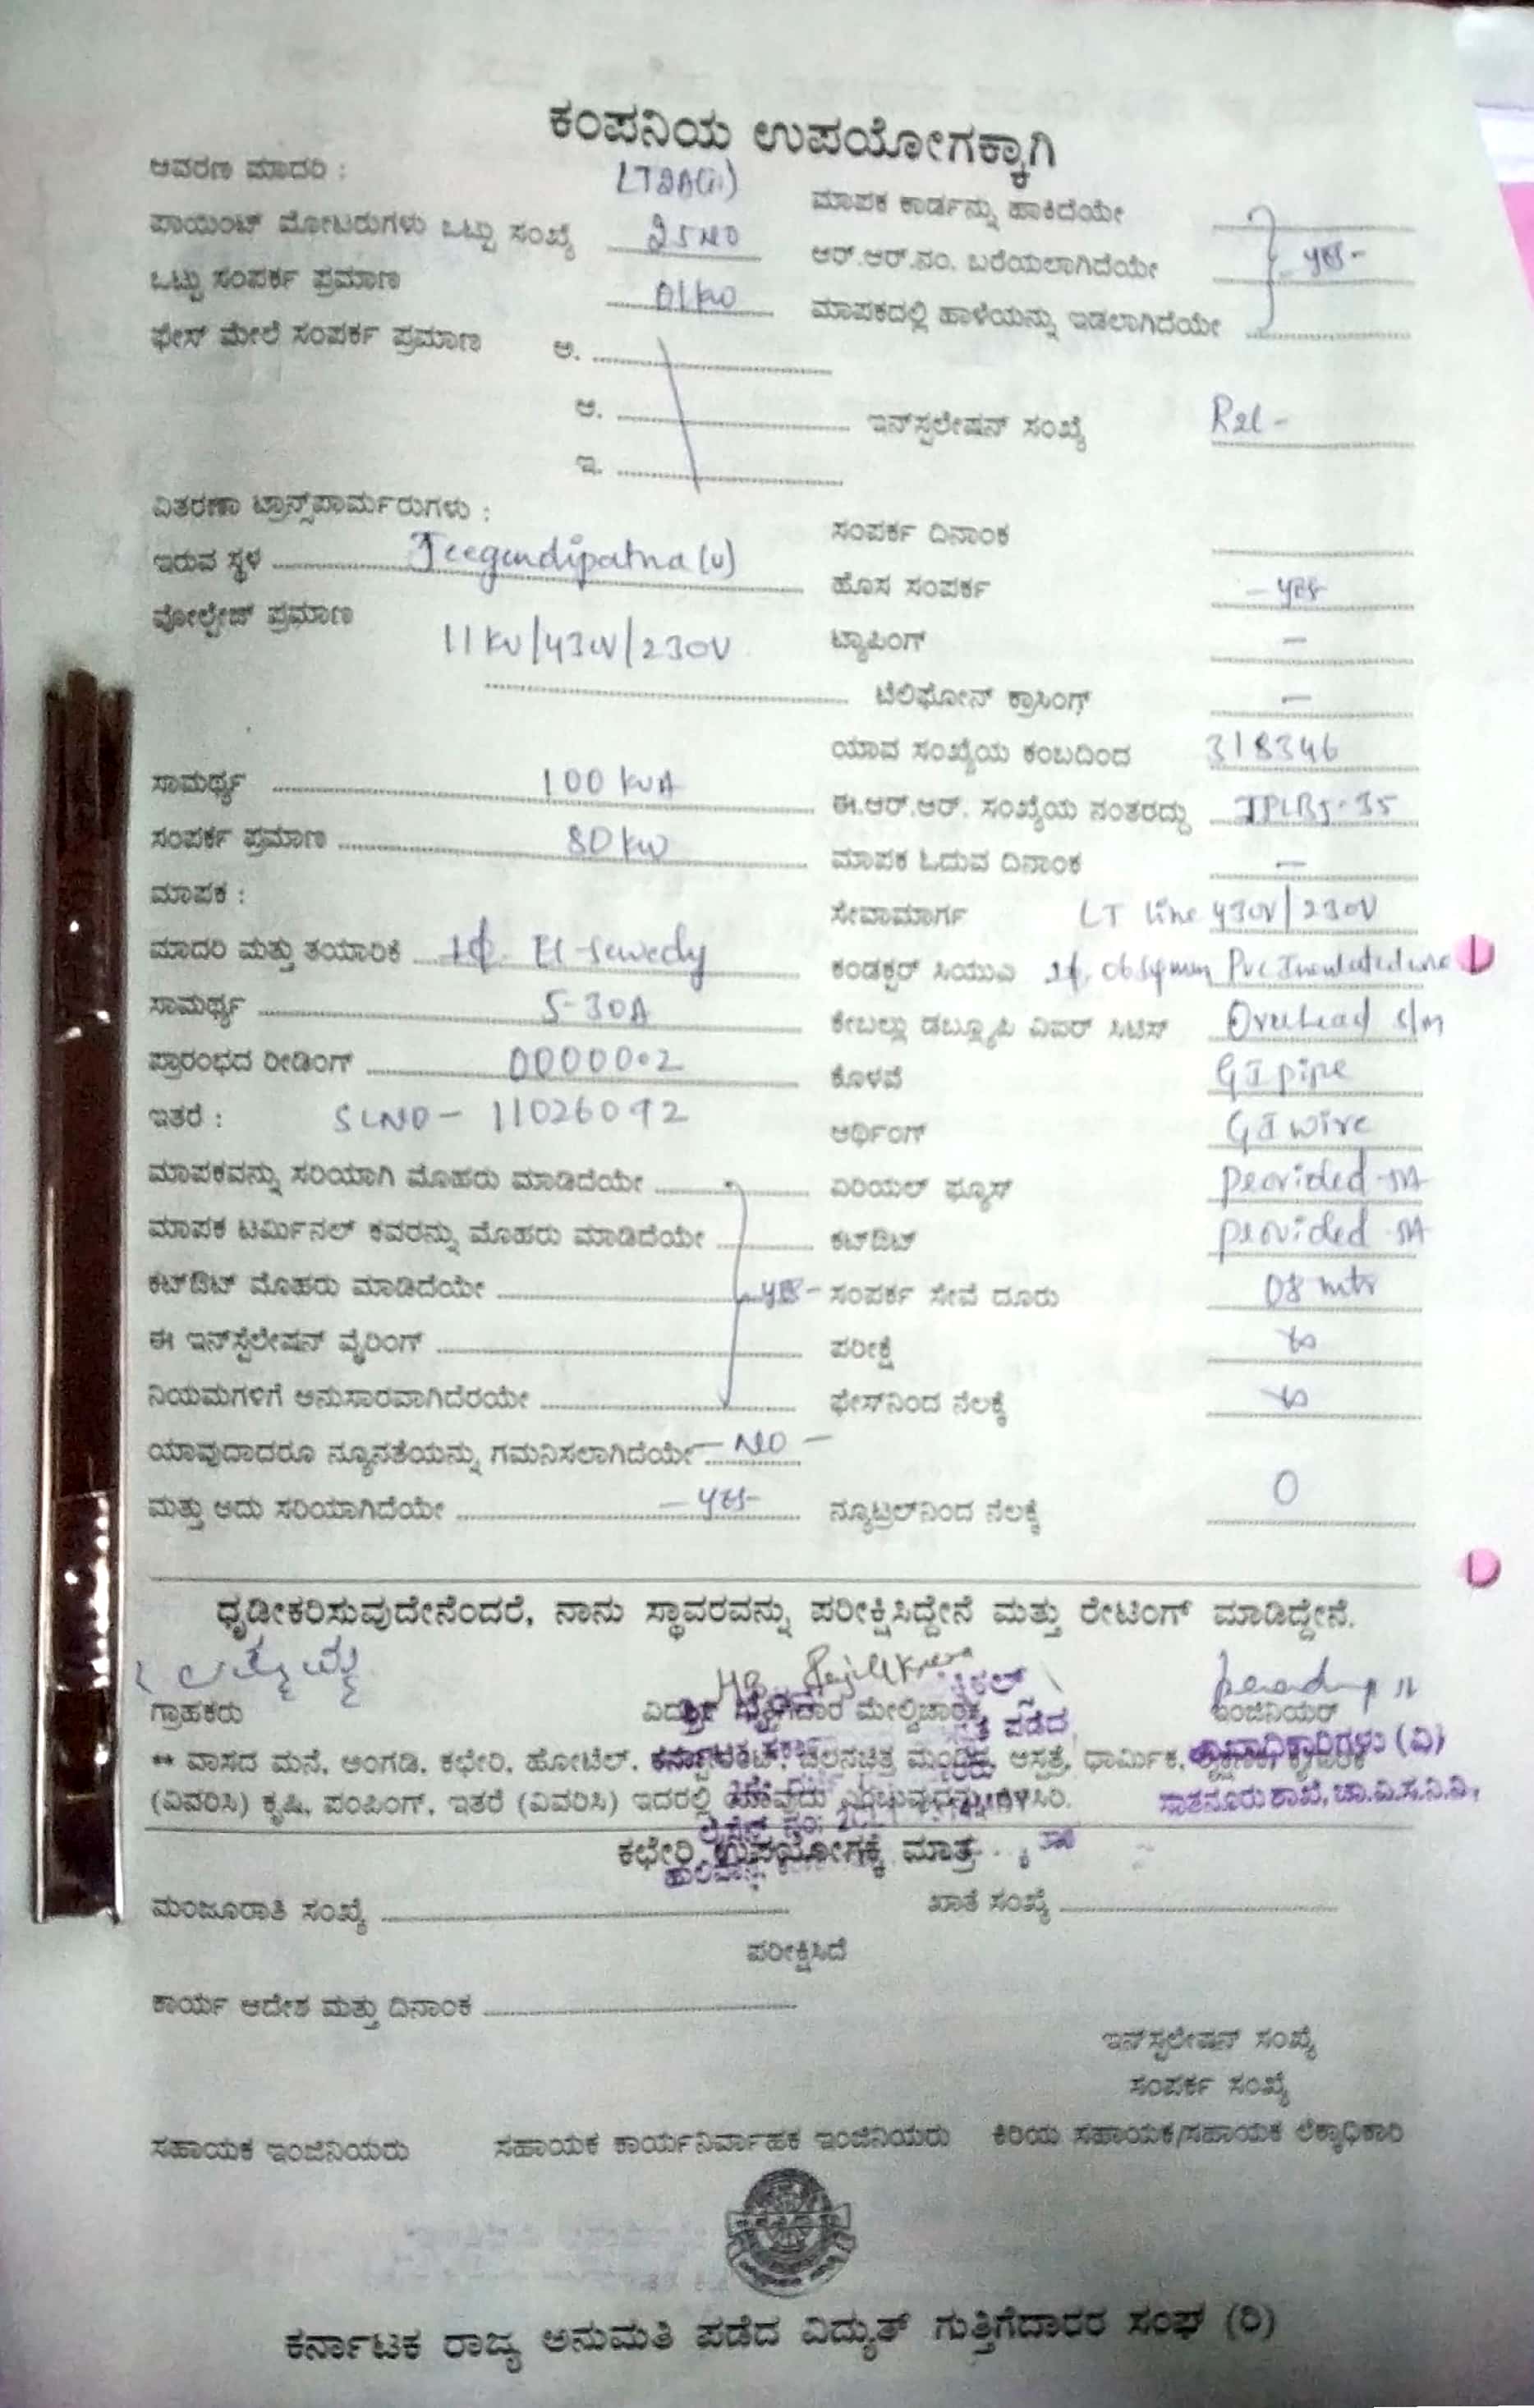 ಕಂಪನಿಯ ಉಪಯೋಗಕ್ಕಾಗಿ
ಆವರಣ ಮಾದರಿ : LT2A(ii)
ಮಾಪಕ ಕಾರ್ಡನ್ನು ಹಾಕಿದೆಯೇ
ಪಾಯಿಂಟ್ ಮೋಟರುಗಳು ಒಟ್ಟು ಸಂಖ್ಯೆ
ಆರ್.ಆರ್.ನಂ. ಬರೆಯಲಾಗಿದೆಯೇ - yes -
ಒಟ್ಟು ಸಂಪರ್ಕ ಪ್ರಮಾಣ
ಮಾಪಕದಲ್ಲಿ ಹಾಳೆಯನ್ನು ಇಡಲಾಗಿದೆಯೇ
ಫೇಸ್ ಮೇಲೆ ಸಂಪರ್ಕ ಪ್ರಮಾಣ ಅ.
ಆ. ಇನ್‌ಸ್ಪಲೇಷನ್ ಸಂಖ್ಯೆ
ಇ.
ವಿತರಣಾ ಟ್ರಾನ್ಸ್‌ಪಾರ್ಮರುಗಳು :
ಸಂಪರ್ಕ ದಿನಾಂಕ
ಇರುವ ಸ್ಥಳ Jeegundipatna (v)
ಹೊಸ ಸಂಪರ್ಕ - yes
ವೋಲ್ಟೇಜ್ ಪ್ರಮಾಣ 11 KV/430V/230V
ಟ್ಯಾಪಿಂಗ್ —
ಟೆಲಿಫೋನ್ ಕ್ರಾಸಿಂಗ್ —
ಯಾವ ಸಂಖ್ಯೆಯ ಕಂಬದಿಂದ 318346
ಸಾಮರ್ಥ್ಯ 100 KVA
ಈ.ಆರ್.ಆರ್. ಸಂಖ್ಯೆಯ ನಂತರದ್ದು
ಸಂಪರ್ಕ ಪ್ರಮಾಣ 80 KW
ಮಾಪಕ ಓದುವ ದಿನಾಂಕ —
ಮಾಪಕ :
ಸೇವಾಮಾರ್ಗ LT line 430V/230V
ಮಾದರಿ ಮತ್ತು ತಯಾರಿಕೆ 1ϕ. El-sewedy
ಕಂಡಕ್ಟರ್ ಸಿಯುಎ
ಸಾಮರ್ಥ್ಯ 5-30A
ಕೇಬಲ್ಲು ಡಬ್ಲ್ಯೂಪಿ ವಿಐಆರ್ ಸಿಟಿಸ್ Overhead s/m
ಪ್ರಾರಂಭದ ರೀಡಿಂಗ್ 000000.2
ಕೊಳವೆ GI pipe
ಇತರೆ : SLNO - 11026092
ಆರ್ಥಿಂಗ್ GI wire
ಮಾಪಕವನ್ನು ಸರಿಯಾಗಿ ಮೊಹರು ಮಾಡಿದೆಯೇ
ಏರಿಯಲ್ ಫ್ಯೂಸ್ provided
ಮಾಪಕ ಟರ್ಮಿನಲ್ ಕವರನ್ನು ಮೊಹರು ಮಾಡಿದೆಯೇ
ಕಟ್‌ಔಟ್ provided
ಕಟ್‌ಔಟ್ ಮೊಹರು ಮಾಡಿದೆಯೇ - yes -
ಸಂಪರ್ಕ ಸೇವೆ ದೂರು 08 mtr
ಈ ಇನ್‌ಸ್ಟೆಲೇಷನ್ ವೈರಿಂಗ್
ಪರೀಕ್ಷೆ
ನಿಯಮಗಳಿಗೆ ಅನುಸಾರವಾಗಿದೆರಯೇ
ಫೇಸ್‌ನಿಂದ ನೆಲಕ್ಕೆ
ಯಾವುದಾದರೂ ನ್ಯೂನತೆಯನ್ನು ಗಮನಿಸಲಾಗಿದೆಯೇ — NO —
ಮತ್ತು ಅದು ಸರಿಯಾಗಿದೆಯೇ - yes -
ನ್ಯೂಟ್ರಲ್‌ನಿಂದ ನೆಲಕ್ಕೆ 0
ಧೃಡೀಕರಿಸುವುದೇನೆಂದರೆ, ನಾನು ಸ್ಥಾವರವನ್ನು ಪರೀಕ್ಷಿಸಿದ್ದೇನೆ ಮತ್ತು ರೇಟಿಂಗ್ ಮಾಡಿದ್ದೇನೆ.
ಗ್ರಾಹಕರು ಮೇಲ್ವಿಚಾರಕ ಇಂಜಿನಿಯರ್
** ವಾಸದ ಮನೆ, ಅಂಗಡಿ, ಕಛೇರಿ, ಹೋಟೆಲ್, ಚಲನಚಿತ್ರ ಮಂದಿರ, ಆಸ್ಪತ್ರೆ, ಧಾರ್ಮಿಕ,
(ವಿವರಿಸಿ) ಕೃಷಿ, ಪಂಪಿಂಗ್, ಇತರೆ (ವಿವರಿಸಿ) ಇದರಲ್ಲಿ
ಸಾತನೂರು ಶಾಖೆ, ಚಾ.ವಿ.ಸ.ನಿ.ನಿ,
ಕಛೇರಿ ಉಪಯೋಗಕ್ಕೆ ಮಾತ್ರ
ಮಂಜೂರಾತಿ ಸಂಖ್ಯೆ ಖಾತೆ ಸಂಖ್ಯೆ
ಪರೀಕ್ಷಿಸಿದೆ
ಕಾರ್ಯ ಆದೇಶ ಮತ್ತು ದಿನಾಂಕ
ಇನ್‌ಸ್ಪಲೇಷನ್ ಸಂಖ್ಯೆ
ಸಂಪರ್ಕ ಸಂಖ್ಯೆ
ಸಹಾಯಕ ಇಂಜಿನಿಯರು ಸಹಾಯಕ ಕಾರ್ಯನಿರ್ವಾಹಕ ಇಂಜಿನಿಯರು ಕಿರಿಯ ಸಹಾಯಕ/ಸಹಾಯಕ ಲೆಕ್ಕಾಧಿಕಾರಿ
ಕರ್ನಾಟಕ ರಾಜ್ಯ ಅನುಮತಿ ಪಡೆದ ವಿದ್ಯುತ್ ಗುತ್ತಿಗೆದಾರರ ಸಂಘ (ರಿ)